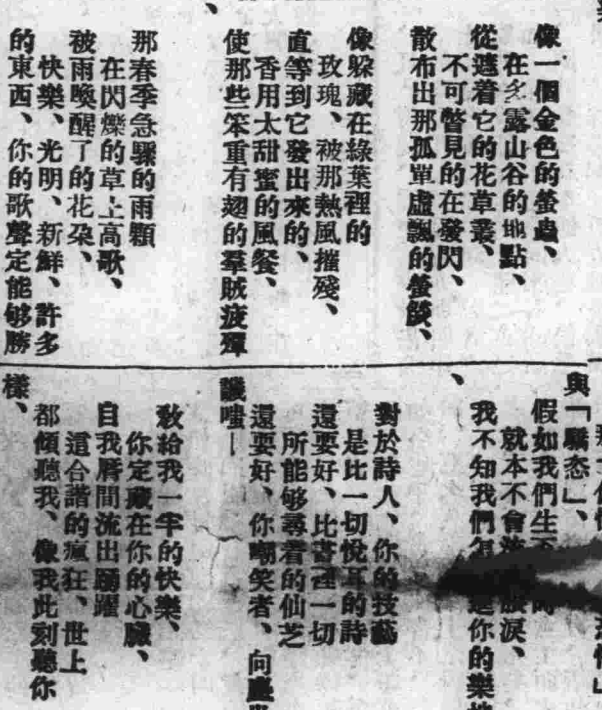 像一個金色的螢蟲、
在多露山谷的地點、
從遮着它的花草叢、
不可瞥見的在發閃、
散布出那孤單虛飄的螢燄、
像躲藏在綠葉裡的
玫瑰、被那熱風摧殘、
直等到它發出來的、
香用太甜蜜的風餐、
使那些笨重有翅的羣賊疲殫
、
那春季急驟的雨顆
在閃爍的草上高歌、
被雨喚醒了的花朶、
快樂、光明、新鮮、許多
的東西、你的歌聲定能够勝
與「驕态」、
假如我們生
就本不會
淚、
我不知我們怎
你的樂
、
對於詩人、你的技藝
是比一切悅耳的詩
還要好、比書裡一切
所能够尋着的仙芝
還要好、你嘲笑者、向塵
譏嗤—
敎給我一牢的快樂、
你定藏在你的心臟、
自我脣間流出踊躍
這合諧的瘋狂、世上
都傾聽我、像我此刻聽你
樣、